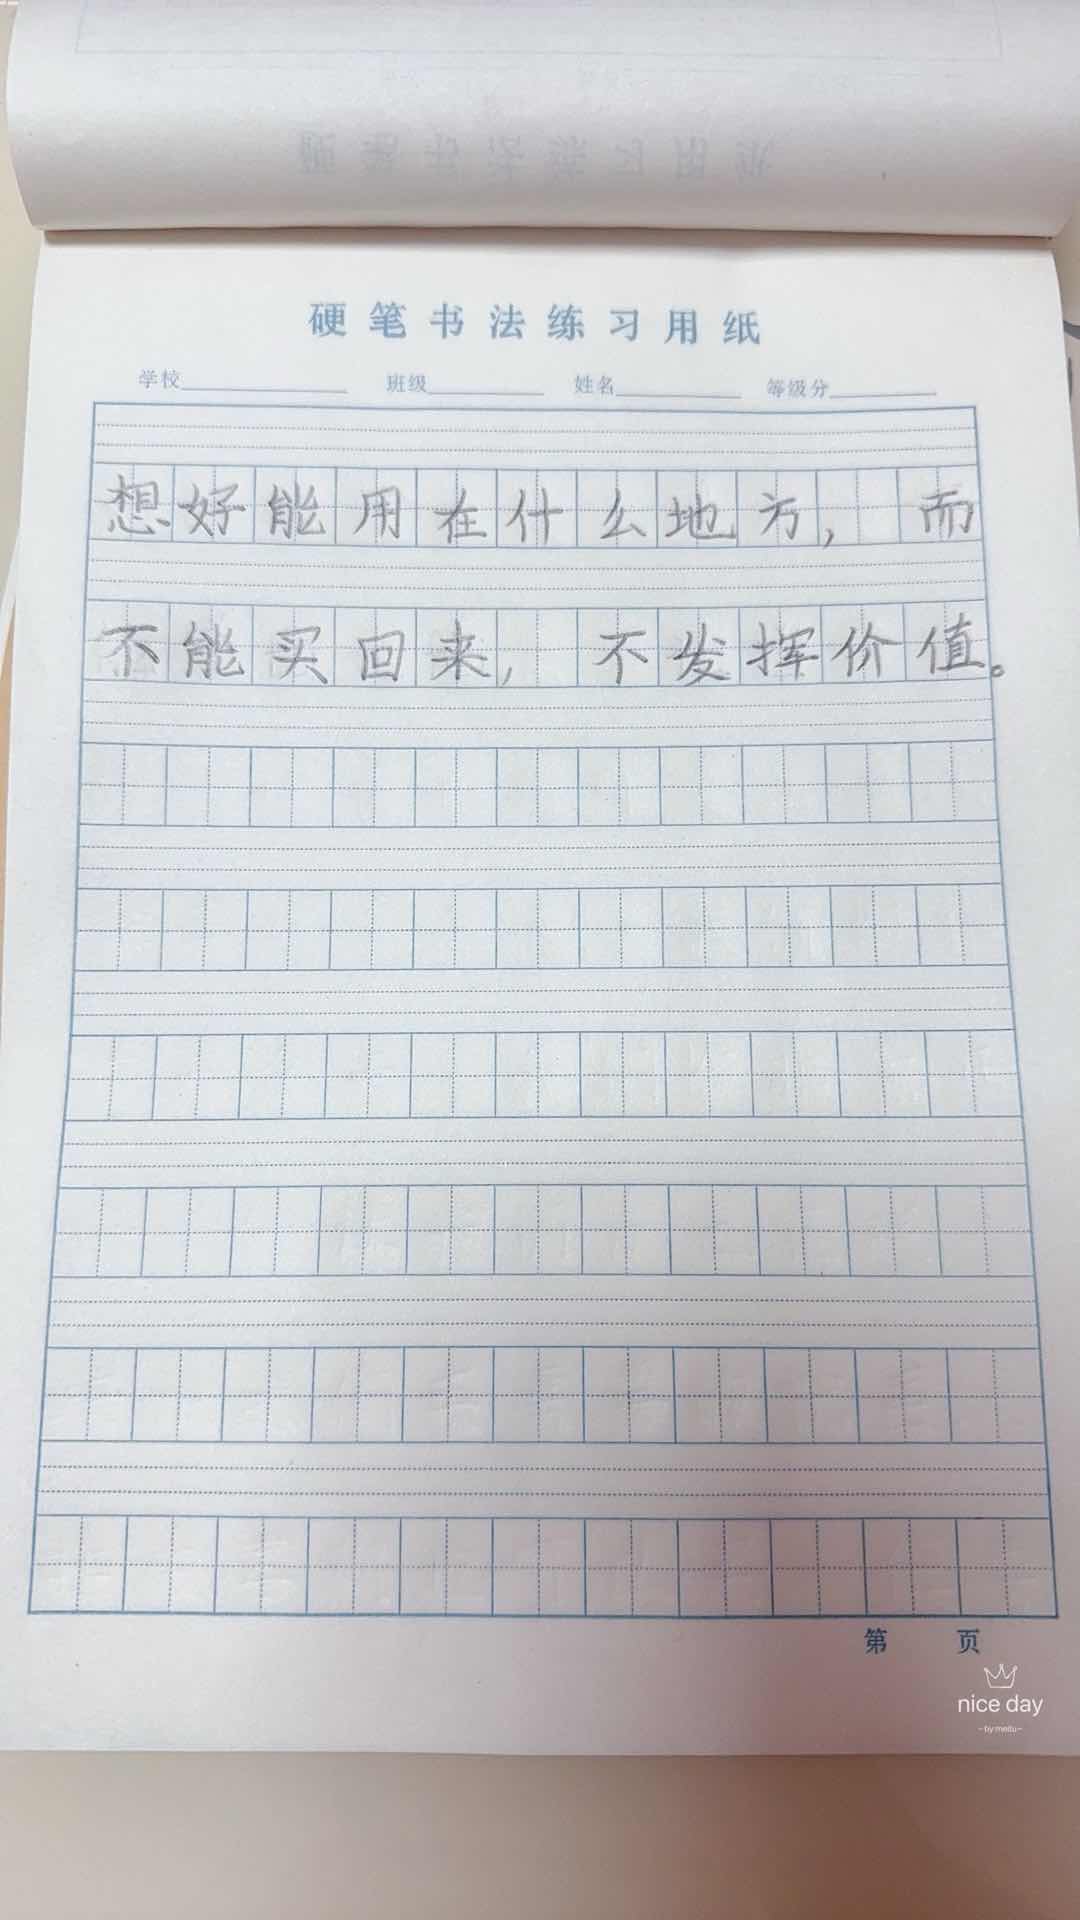 硬笔书法练习用纸
学校 班级 姓名 等级分
想好能用在什么地方，而
不能买回来，不发挥价值。
第 页
nice day
- by meitu -